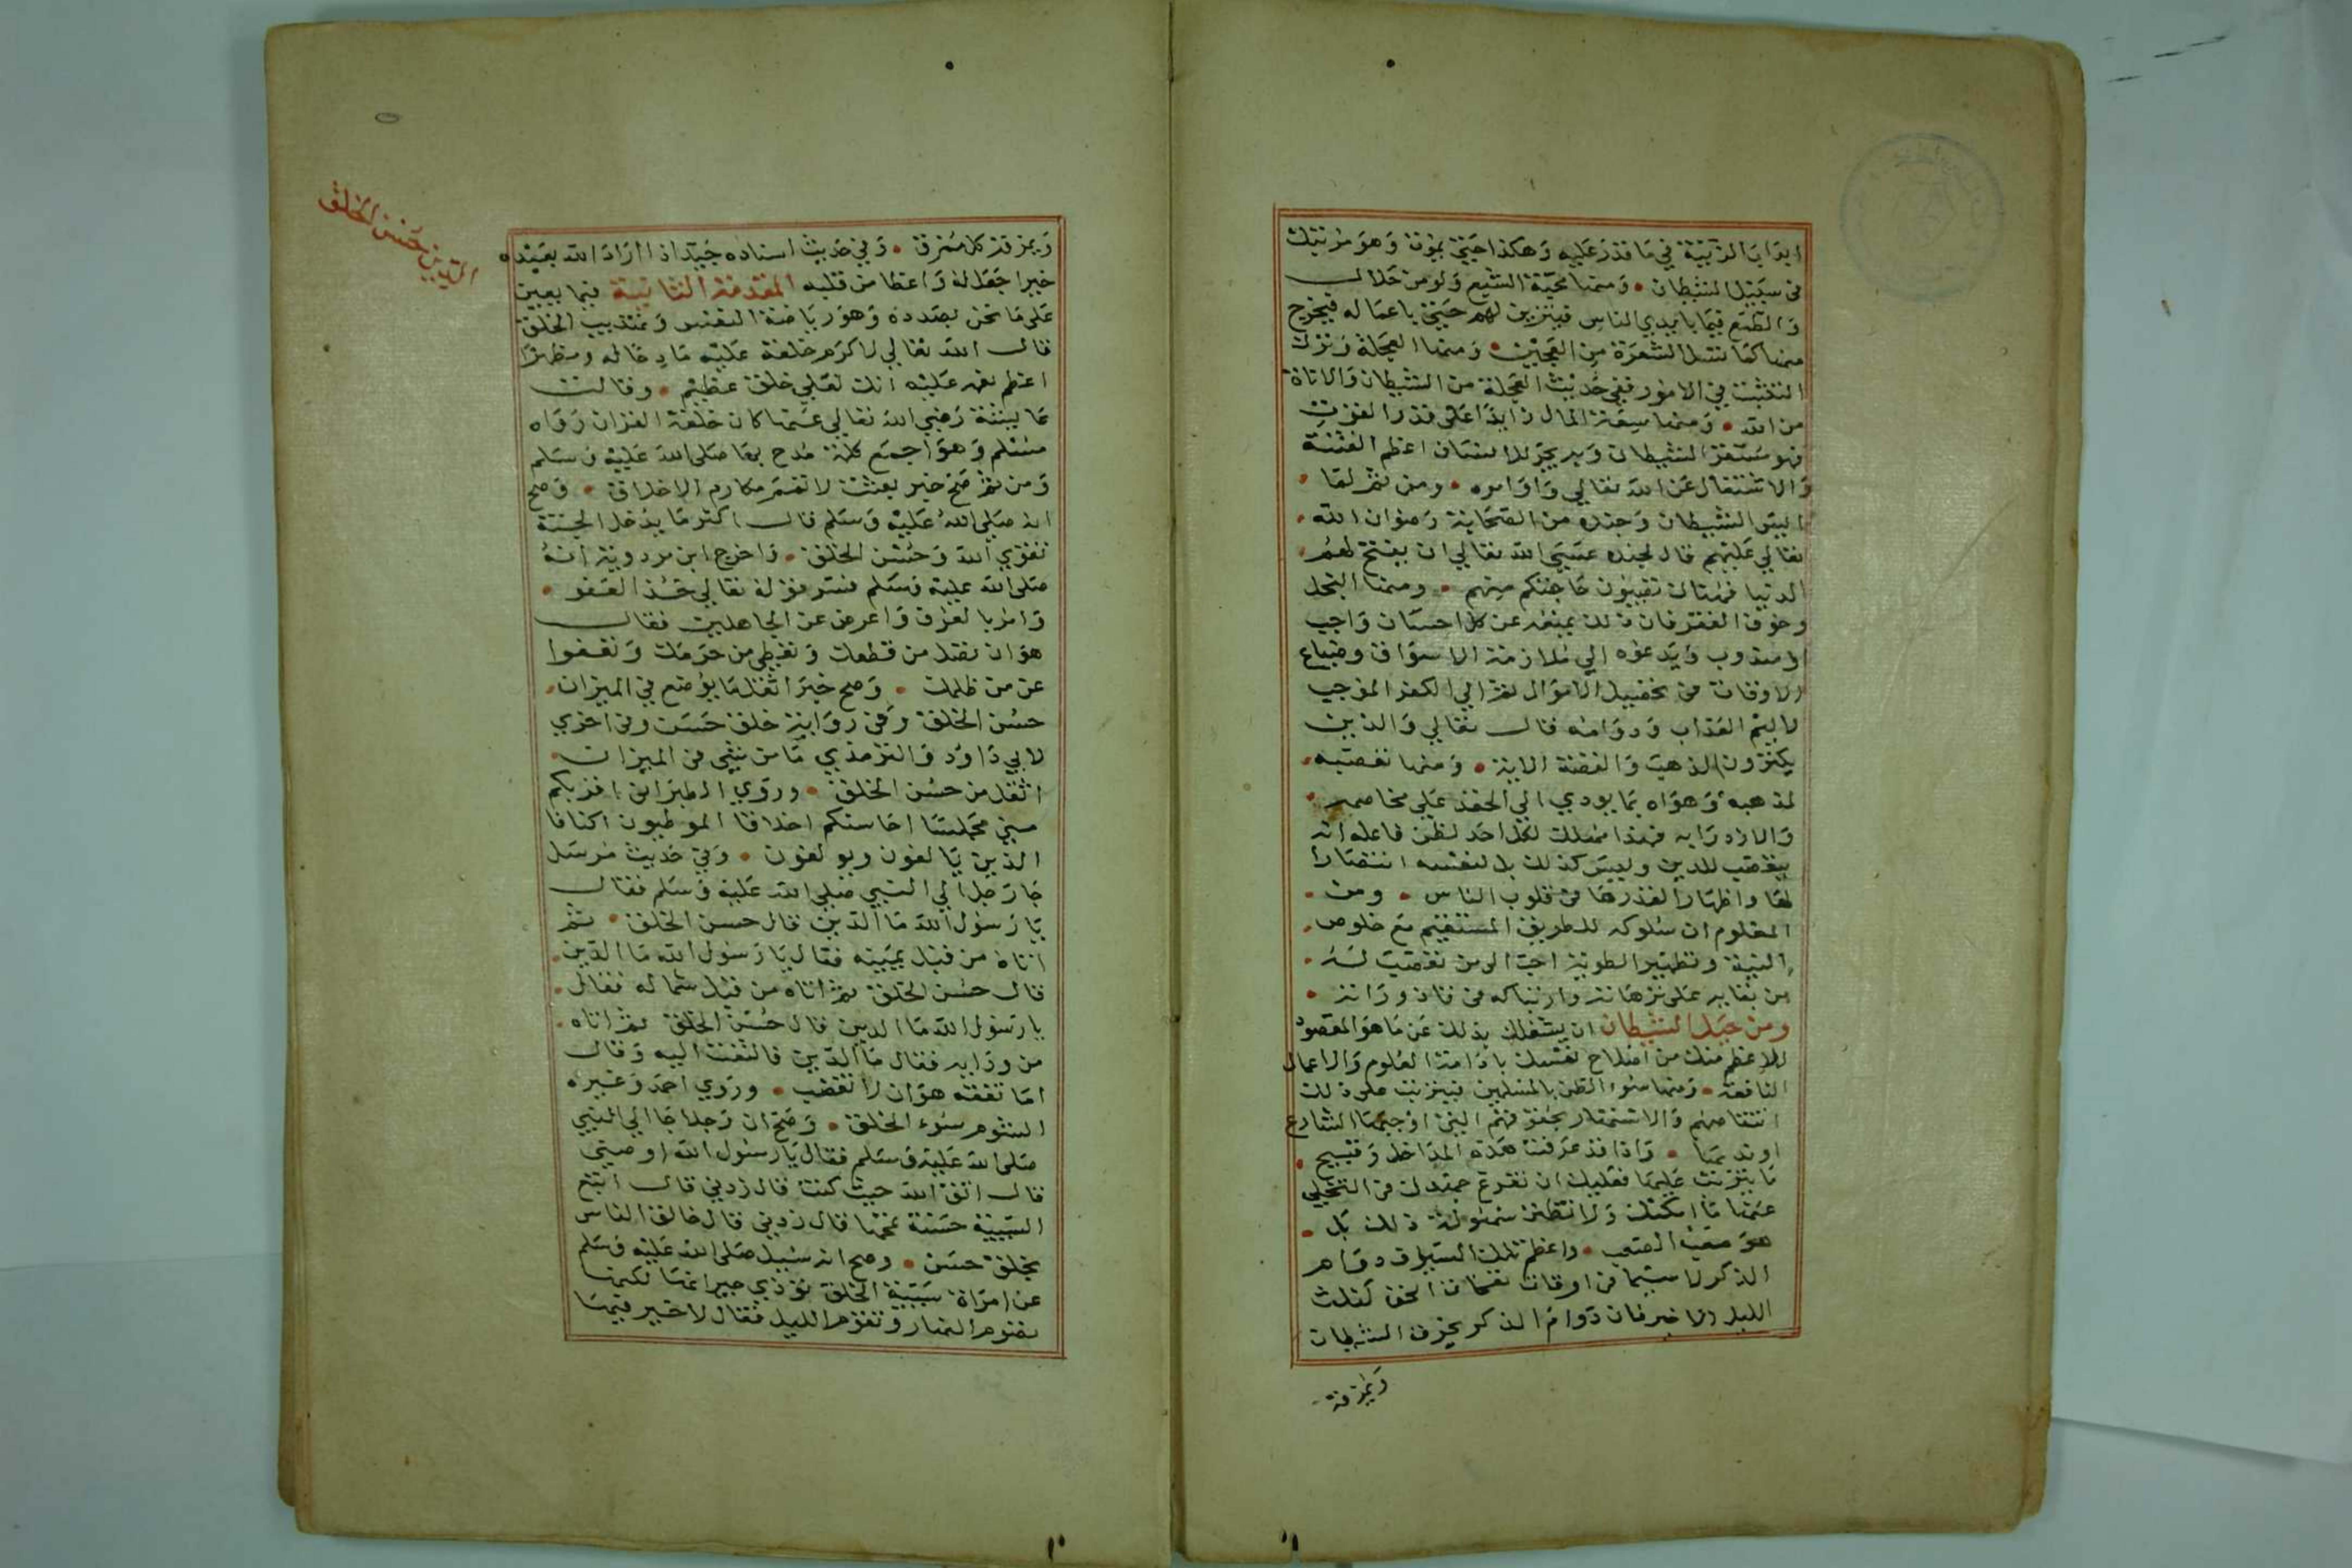 ابدا با لزينة في ما قدر عليه وهكذا حتي يموت وهو مرتبك
في سبيل الشيطان • ومنها محبة الشبع ولو من حلال
والطمع فيما بايدي الناس فيتزين لهم حتي باعماله فيخرج
منها كما تسل الشعرة من العجين • ومنها العجلة وترك
التثبت في الامور ففي حديث العجلة من الشيطان والاناة
من الله • ومنها سعة المال زايدا علي قدر القوت
فهو مستقر الشيطان وبه يجر للانسان اعظم الفتنة
والاشتغال عن الله تعالي واوامره • ومن ثم لما
ايس الشيطان وجنده من الصحابة رضوان الله
تعالي عليهم قال لجنده عسي الله تعالي ان يفتح لهم
الدنيا فهنالك تصيبون حاجتكم منهم • ومنها البخل
وخوف الفقر فان ذلك يمنعه عن كل احسان واجب
او مندوب ويدعوه الي ملازمة الاسواق وضياع
الاوقات في تحصيل الاموال ثم الي الكفر الموجب
لاليم العذاب ودوامه قال تعالي والذين
يكنزون الذهب والفضة الاية • ومنها تعصبه
لمذهبه وهواه بما يودي الي الحقد علي مخاصمه
والازدرا به فهذا مهلك لكل احد لظن فاعله انه
يتعصب للدين وليس كذلك بل لنفسه انتصارا
لها واظهارا لقدرها في قلوب الناس • ومن
المعلوم ان سلوكه للطريق المستقيم مع خلوص
النية وتطهير الطوية احب الي من تعصب له
من بقايه علي ترهاته وارتباكه في قاذوراته •
ومن حيل الشيطان ان يشغلك بذلك عن ما هو المقصود
الاعظم منك من اصلاح نفسك بادامة العلوم والاعمال
النافعة • ومنها سوء الظن بالمسلمين فيترتب علي ذلك
انتقاصهم والاستهتار بحقوقهم التي اوجبها الشارع
او ندبها • واذا قد عرفت هذه المداخل وقبيح
ما يترتب عليها فعليك ان تفرغ جهدك في التخلي
عنها ما امكنك ولا تظن سهولة ذلك بل
هو صعب الصعب • واعظم تلك الطرق دوام
الذكر لا سيما في اوقات نفحات الحق كثلث
الليل الاخير فان دوام الذكر يحرق الشيطان
ويمزقه
ويمزقه كل ممزق • وفي حديث اسناده جيد اذا اراد الله بعبده
خيرا جعل له واعظا من قلبه المقدمة الثانية فيما يعين
علي ما نحن بصدده وهو رياضة النفس وتهذيب الخلق
قال الله تعالي لاكرم خلقه عليه مادحا له ومظهرا
اعظم نعمه عليه انك لعلي خلق عظيم • وقالت
عايشة رضي الله تعالي عنها كان خلقه القران رواه
مسلم وهو اجمع كلمة مدح بها صلي الله عليه وسلم
ومن ثم صح خبر بعثت لاتمم مكارم الاخلاق • وصح
انه صلي الله عليه وسلم قال اكثر ما يدخل الجنة
تقوي الله وحسن الخلق • واخرج ابن مردوية انه
صلي الله عليه وسلم فسر قوله تعالي خذ العفو •
وامر بالعرف واعرض عن الجاهلين فقال
هو ان تصل من قطعك وتعطي من حرمك وتعفوا
عن من ظلمك • وصح خبر اثقل ما يوضع في الميزان
حسن الخلق وفي رواية خلق حسن وفي اخري
لابي داود والترمذي ما من شي في الميزان
اثقل من حسن الخلق • وروي الطبراني اقربكم
مني مجلسا احاسنكم اخلاقا الموطيون اكنافا
الذين يالفون ويولفون • وفي حديث مرسل
جا رجل الي النبي صلي الله عليه وسلم فقال
يا رسول الله ما الدين قال حسن الخلق • ثم
اتاه من قبل يمينه فقال يا رسول الله ما الدين
قال حسن الخلق ثم اتاه من قبل شماله فقال
يا رسول الله ما الدين قال حسن الخلق ثم اتاه
من ورايه فقال ما الدين فالتفت اليه وقال
اما تفقه هو ان لا تغضب • وروي احمد وغيره
الشوم سوء الخلق • وصح ان رجلا جا الي النبي
صلي الله عليه وسلم فقال يا رسول الله اوصني
قال اتق الله حيث كنت قال زدني قال اتبع
السيية حسنة تمحها قال زدني قال خالق الناس
بخلق حسن • وصح انه سيل صلي الله عليه وسلم
عن امراة سيية الخلق توذي جيرانها لكنها
تصوم النهار وتقوم الليل فقال لا خير فيها
الدين حسن الخلق